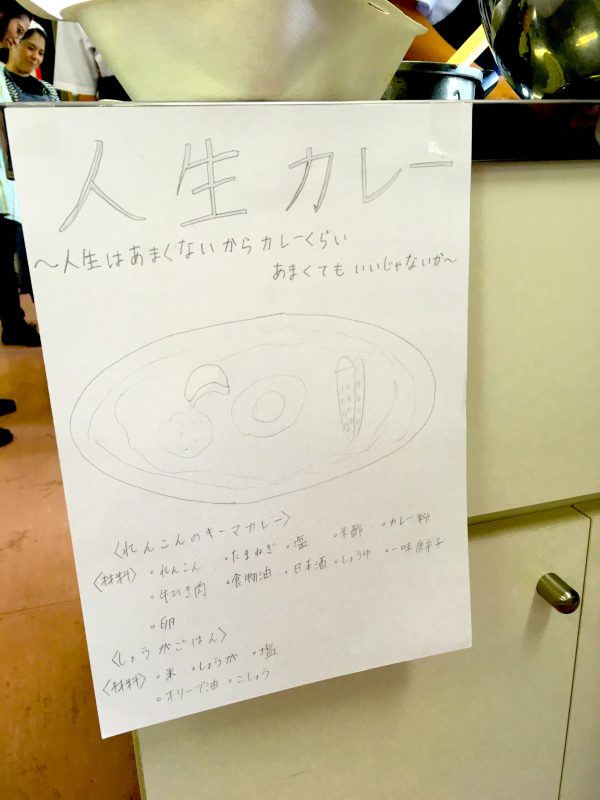 人生カレー
～人生はあまくないからカレーくらい
あまくてもいいじゃないか～
〈れんこんのキーマカレー〉
〈材料〉 ・れんこん ・たまねぎ ・塩 ・米酢 ・カレー粉
・牛ひき肉 ・食物油 ・日本酒 ・しょうゆ ・一味唐辛子
・卵
〈しょうがごはん〉
〈材料〉 ・米 ・しょうが ・塩
・オリーブ油 ・こしょう